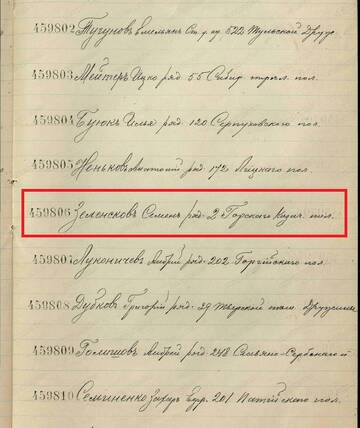 459802 Тугуновъ Емельянъ Ст. у. оф. 522 Тульской Друж.
459803 Мейтеръ Ицко ряд 55 Сибир. стрѣл. пол.
459804 Буюкъ Илья ряд. 120 Серпуховскаго пол.
459805 Ноньковъ Анатолій ряд. 172 Лидскаго пол.
459806 Зеленсковъ Семенъ ряд. 2 Горскаго пол.
459807 Луконичевъ Андрей ряд. 202 Горійскаго пол.
459808 Дудковъ Григорій ряд. 29 Дружины
459809 Андрей ряд. 248 Славяно-Сербскаго п
459810 Семиненко Захаръ 201 Потійскаго пол.